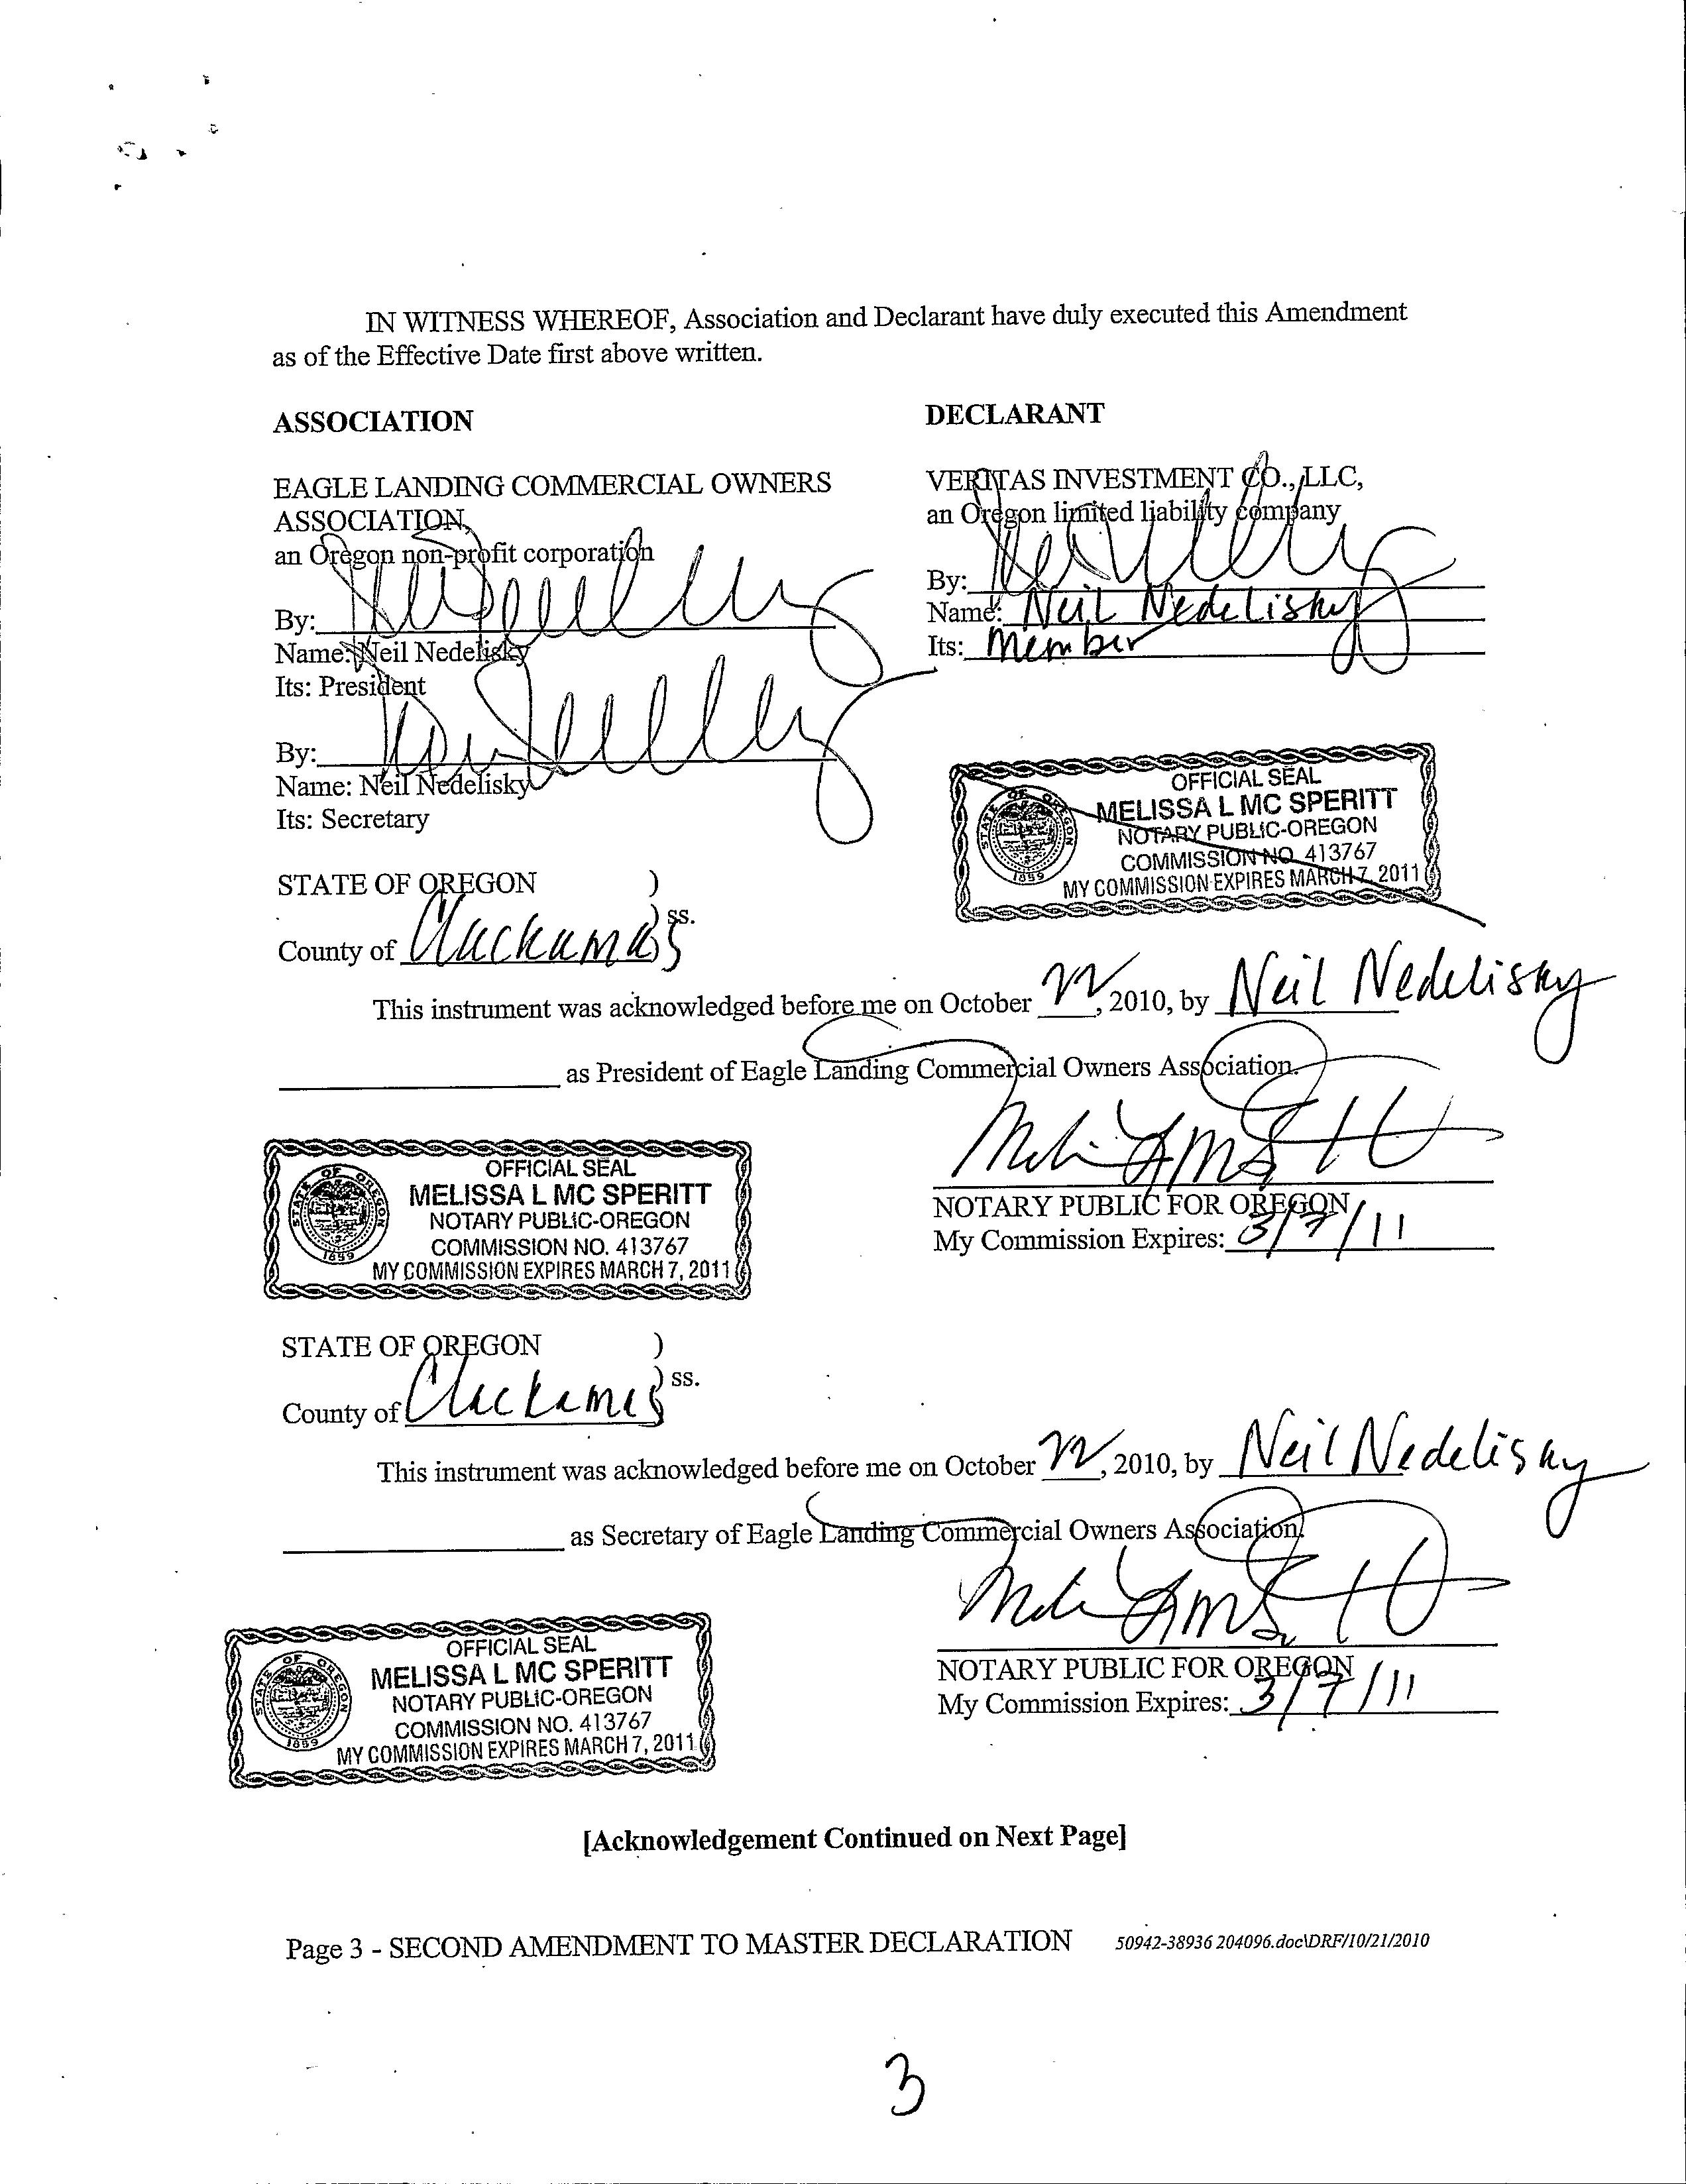 IN WITNESS WHEREOF, Association and Declarant have duly executed this Amendment
as of the Effective Date first above written.
ASSOCIATION
EAGLE LANDING COMMERCIAL OWNERS
ASSOCIATION,
an Oregon non-profit corporation
By:
Name: Neil Nedelisky
Its: President
By:
Name: Neil Nedelisky
Its: Secretary
DECLARANT
VERITAS INVESTMENT CO., LLC,
an Oregon limited liability company
By:
Name: Neil Nedelisky
Its: Member
OFFICIAL SEAL
MELISSA L MC SPERITT
NOTARY PUBLIC-OREGON
COMMISSION NO. 413767
MY COMMISSION EXPIRES MARCH 7, 2011
STATE OF OREGON
1859
STATE OF OREGON )
) ss.
County of Clackamas
This instrument was acknowledged before me on October 22, 2010, by Neil Nedelisky
as President of Eagle Landing Commercial Owners Association.
OFFICIAL SEAL
MELISSA L MC SPERITT
NOTARY PUBLIC-OREGON
COMMISSION NO. 413767
MY COMMISSION EXPIRES MARCH 7, 2011
STATE OF OREGON
1859
NOTARY PUBLIC FOR OREGON
My Commission Expires: 3/7/11
STATE OF OREGON )
) ss.
County of Clackamas
This instrument was acknowledged before me on October 22, 2010, by Neil Nedelisky
as Secretary of Eagle Landing Commercial Owners Association.
OFFICIAL SEAL
MELISSA L MC SPERITT
NOTARY PUBLIC-OREGON
COMMISSION NO. 413767
MY COMMISSION EXPIRES MARCH 7, 2011
STATE OF OREGON
1859
NOTARY PUBLIC FOR OREGON
My Commission Expires: 3/7/11
[Acknowledgement Continued on Next Page]
Page 3 - SECOND AMENDMENT TO MASTER DECLARATION 50942-38936 204096.doc\DRF/10/21/2010
3